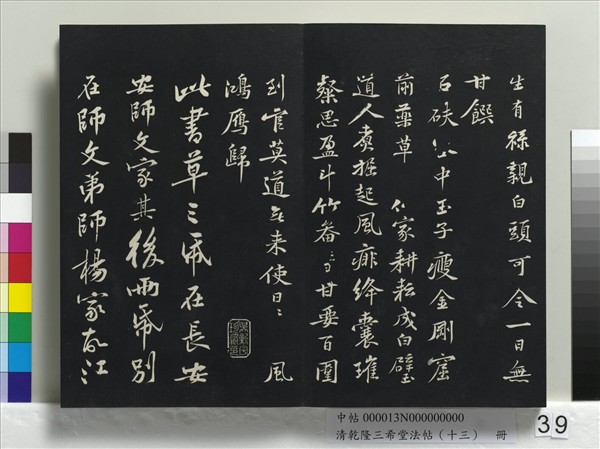 生有祿親白頭可令一日無
甘饌
石砆谷中玉子瘦金剛窟
前藥草 仙家耕耘成白璧
道人煮掘起風痱絳囊璀
粲思盈斗竹畚香甘要百圍
到官莫道無來使日〻 風
鴻雁歸
此書草三紙在長安
安師文家其後兩紙別
在師文弟師楊家故江
中帖 000013N000000000
清乾隆三希堂法帖（十三） 冊
39